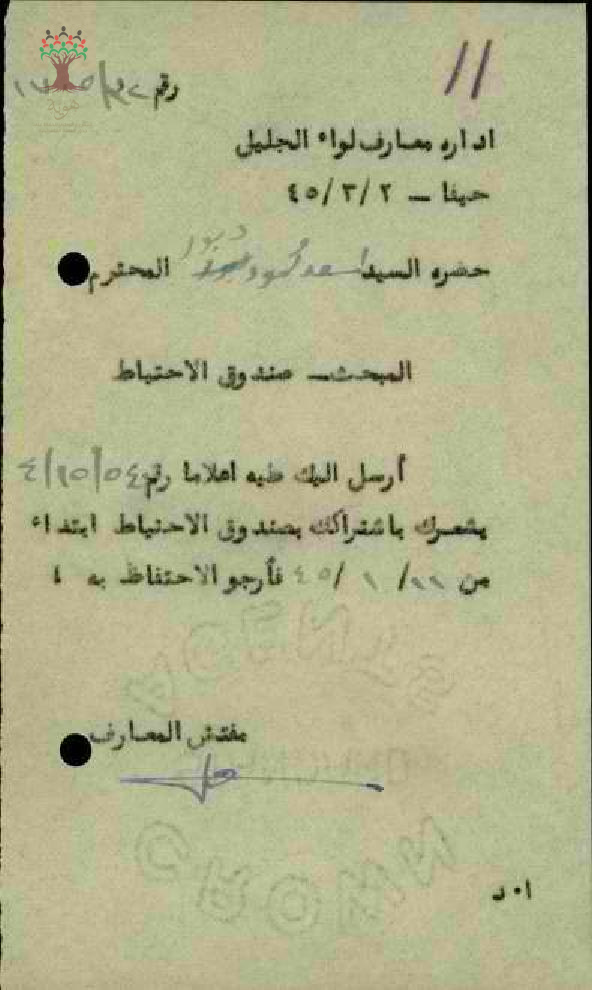 11
رقم
اداره معارف لواء الجليل
حيفا - ٤٥/٣/٢
حضره السيد اسعد محمود دبور المحترم
المبحث - صندوق الاحتياط
أرسل اليك طيه اعلاما رقم ٤/١٥/٥٤
يشعرك باشتراكك بصندوق الاحتياط ابتداء
من / ١ / ٤٥ فأرجو الاحتفاظ به ،
مفتش المعارف
ا٠ د